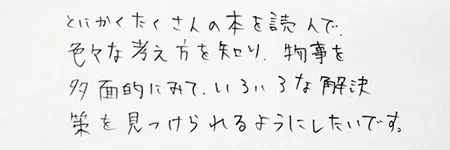 とにかくたくさんの本を読んで、
色々な考え方を知り、物事を
多面的にみて、いろいろな解決
策を見つけられるようにしたいです。